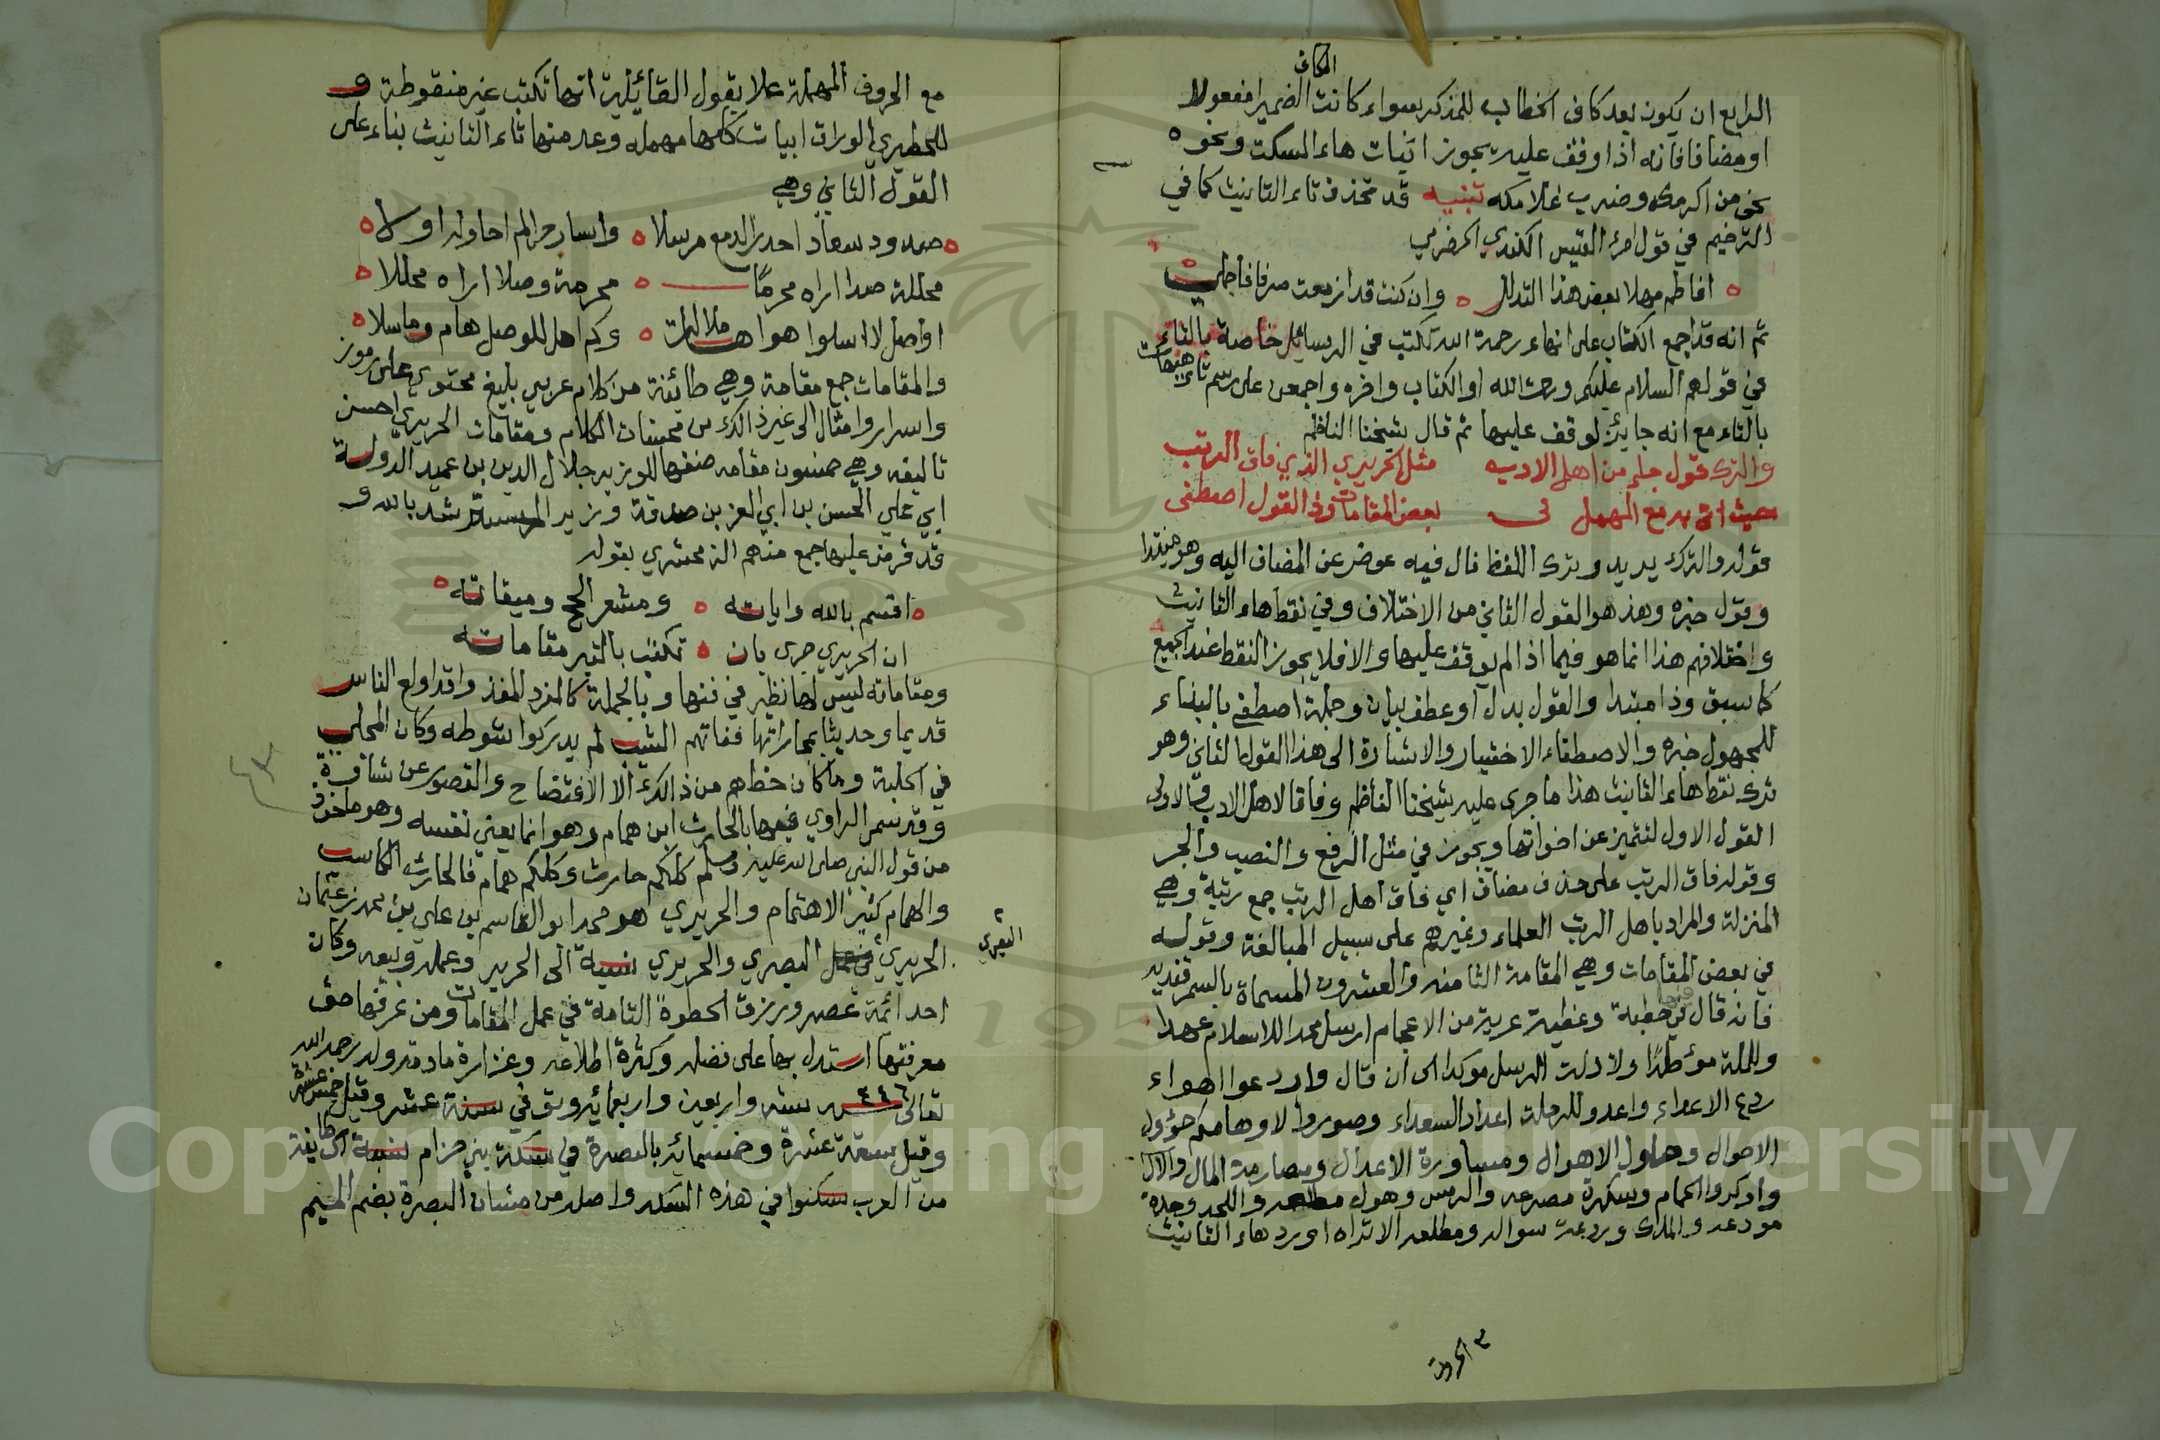 الكاف
الرابع ان يكون بعد كاف الخطاب للمذكر سواء كانت الضمير مفعولا
او مضافا فانه اذا وقف عليه يجوز اثبات هاء السكت ونحوه
نحو من اكرمكه وضرب غلامكه تنبيه قد تحذف تاء التانيث كما في
الترخيم في قول امرء القيس الكندي الحضرمي
افاطم مهلا بعض هذا التدلل وان كنت قد ازمعت صرفا فاجملي
ثم انه قد اجمع الكتاب على انهاء رحمة الله تكتب في الرسائل خاصة بالتاء
في قولهم السلام عليكم ورحمت الله او الكتاب واخره واجمعن على رسم تاء هيهات
بالتاء مع انه جايز لوقف عليها ثم قال شيخنا الناظم
والترك قول جاء من اهل الادب مثل الحريري الذي فاق الرتب
حيث اتى به مع المهمل في بعض المقامات وذا القول اصطفى
قوله والترك يريد وترك اللفظ فال فيه عوض عن المضاف اليه وهو مبتدا
وقول خبره وهذ هو القول الثاني من الاختلاف وفي نقط هاء التانيث
واختلافهم هذا انما هو فيما اذا لم يوقف عليها والا فلا يجوز النقط عند الجميع
كما سبق وذا مبتدا والقول بدل او عطف بيان وجملة اصطفى بالبناء
للمجهول خبره والاصطفاء الاختيار والاشارة الى هذا القول الثاني وهو
ترك نقط هاء التانيث هذا ما جرى عليه شيخنا الناظم وفاقا لاهل الادب والاولى
القول الاول لتتميز عن اخواتها ويجوز في مثل الرفع والنصب والجر
وقوله فاق الرتب على حذف مضاف اي فاق اهل الرتب جمع رتبة وهي
المنزلة والمراد باهل الرتب العلماء وغيرهم على سبيل المبالغة وقوله
في بعض المقامات وهي المقامة الثامنه والعشرون المسماة بالسمرقنديه
فانه قال في خطبة وعظية عربية من الاعجام ارسل محمدا للاسلام ممهدا
وللملة موطدا ولادلت الرسل موكدا الى ان قال واردعوا اهواء
ردع الاعداء واعدو للرحلة اعداد السعداء وصوروا لاوهامكم حؤول
الاحوال وحلول الاهوال ومساورة الاعلال ومصارمة المال والال
وادكروا الحمام وسكرة مصرعه والرمس وهول مطلعه واللحد ووحدة
مودعه والملك وروعة سواله ومطلعه الا تراه اورد هاء التانيث
٣ الحروف
مع الحروف المهملة علا بقول القائلين انها تكتب غير منقوطة و
للحظيري الوراق ابيات كلها مهمله وعد منها تاء التانيث بناء على
القول الثاني وهي
صدود سعاد احدر الدمع مرسلا واسار حر الم احاوله اولا
محللة صدا اراه محرما محرمة وصلا اراه محللا
اواصل لا اسلوا هواها ملالة وكم اهل للوصل هام وما سلا
والمقامات جمع مقامة وهي طائفة من كلام عربي بليغ محتوي على رموز
واسرار وامثال الى غير ذالك من محسنات الكلام ومقامات الحريري احسن
تاليفه وهي خمسون مقامه صنفها للوزير جلال الدين بن عميد الدولة
ابي علي الحسن بن ابي العز بن صدقة وزير المسترشد بالله و
قد قرض عليها جمع منهم الزمخشري بقوله
اقسم بالله واياته ومشعر الحج وميقاته
ان الحريري حري بان تكتب بالتبر مقاماته
ومقاماته ليس لها نظير في فنها وبالجملة كالمفرد الفذ وقد اولع الناس
قديما وحديثا بمجاراتها ففاتهم الشنب لم يدركوا شوطه وكان المجلي
في الحلبة وما كان حظهم من ذالك الا الافتضاح والقصور عن شاوه
وقد سمى الراوي فيها بالحارث ابن همام وهو انما يعني نفسه وهو ماخوذ
من قول النبي صلى الله عليه وسلم كلكم حارث وكلكم همام فالحارث الكاسب
والهمام كثير الاهتمام والحريري هو محمد ابو القاسم بن علي بن محمد بن عثمان
الحريري البصري والحريري نسبة الى الحرير وعمله وبيعه وكان
احد ائمة عصره ورزق الحظوة التامة في عمل المقامات ومن عرفها حق
معرفتها استدل بها على فضله وكثرة اطلاعه وغزارة مادته ولد رحمه الله
تعالى ٤٤٦ سنه ست واربعين واربعمائه وتوفي سنة عشر وقيل خمس عشرة
وقيل ستة عشرة وخمسمائه بالبصرة في سكة بني حرام نسبة الى طايفة
من العرب سكنوا في هذه السكه واصله من مشان البصرة بضم الميم